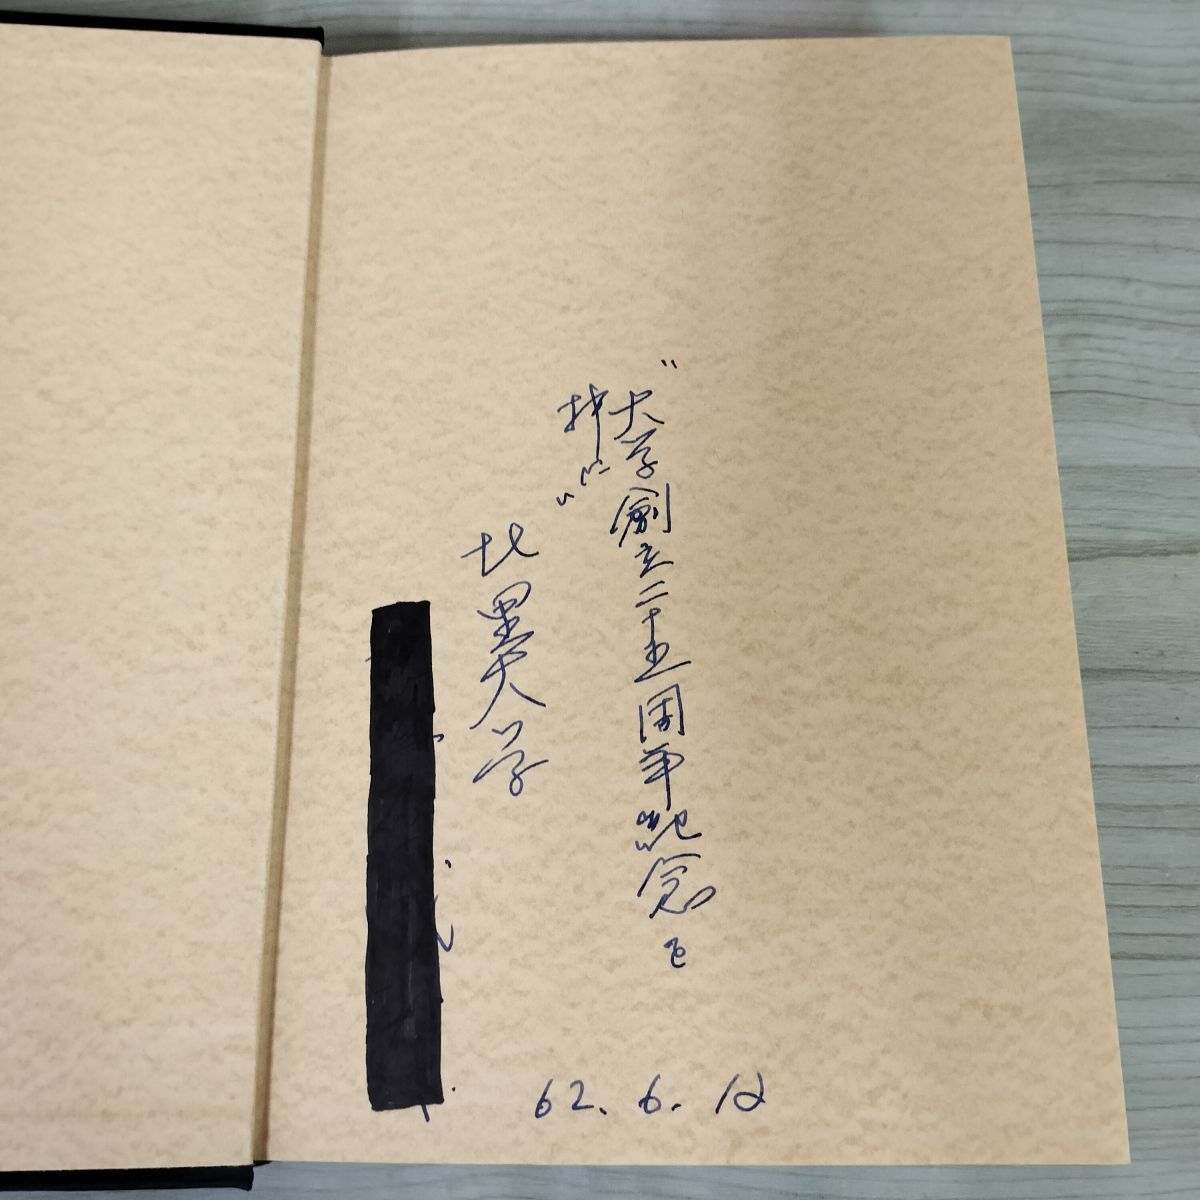 "大学創立二十五周年紀念を
拝に"
北里大学
62.6.12